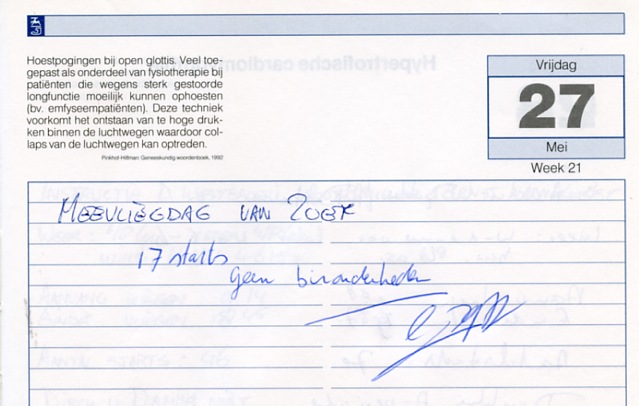 Hoestpogingen bij open glottis. Veel toe-
gepast als onderdeel van fysiotherapie bij
patiënten die wegens sterk gestoorde
longfunctie moeilijk kunnen ophoesten
(bv. emfyseempatiënten). Deze techniek
voorkomt het ontstaan van te hoge druk-
ken binnen de luchtwegen waardoor col-
laps van de luchtwegen kan optreden.
Pinkhof-Hilfman Geneeskundig woordenboek, 1992
Vrijdag
27
Mei
Week 21
MEEVLIEGDAG VAN
17 starts
Geen bizonderheden